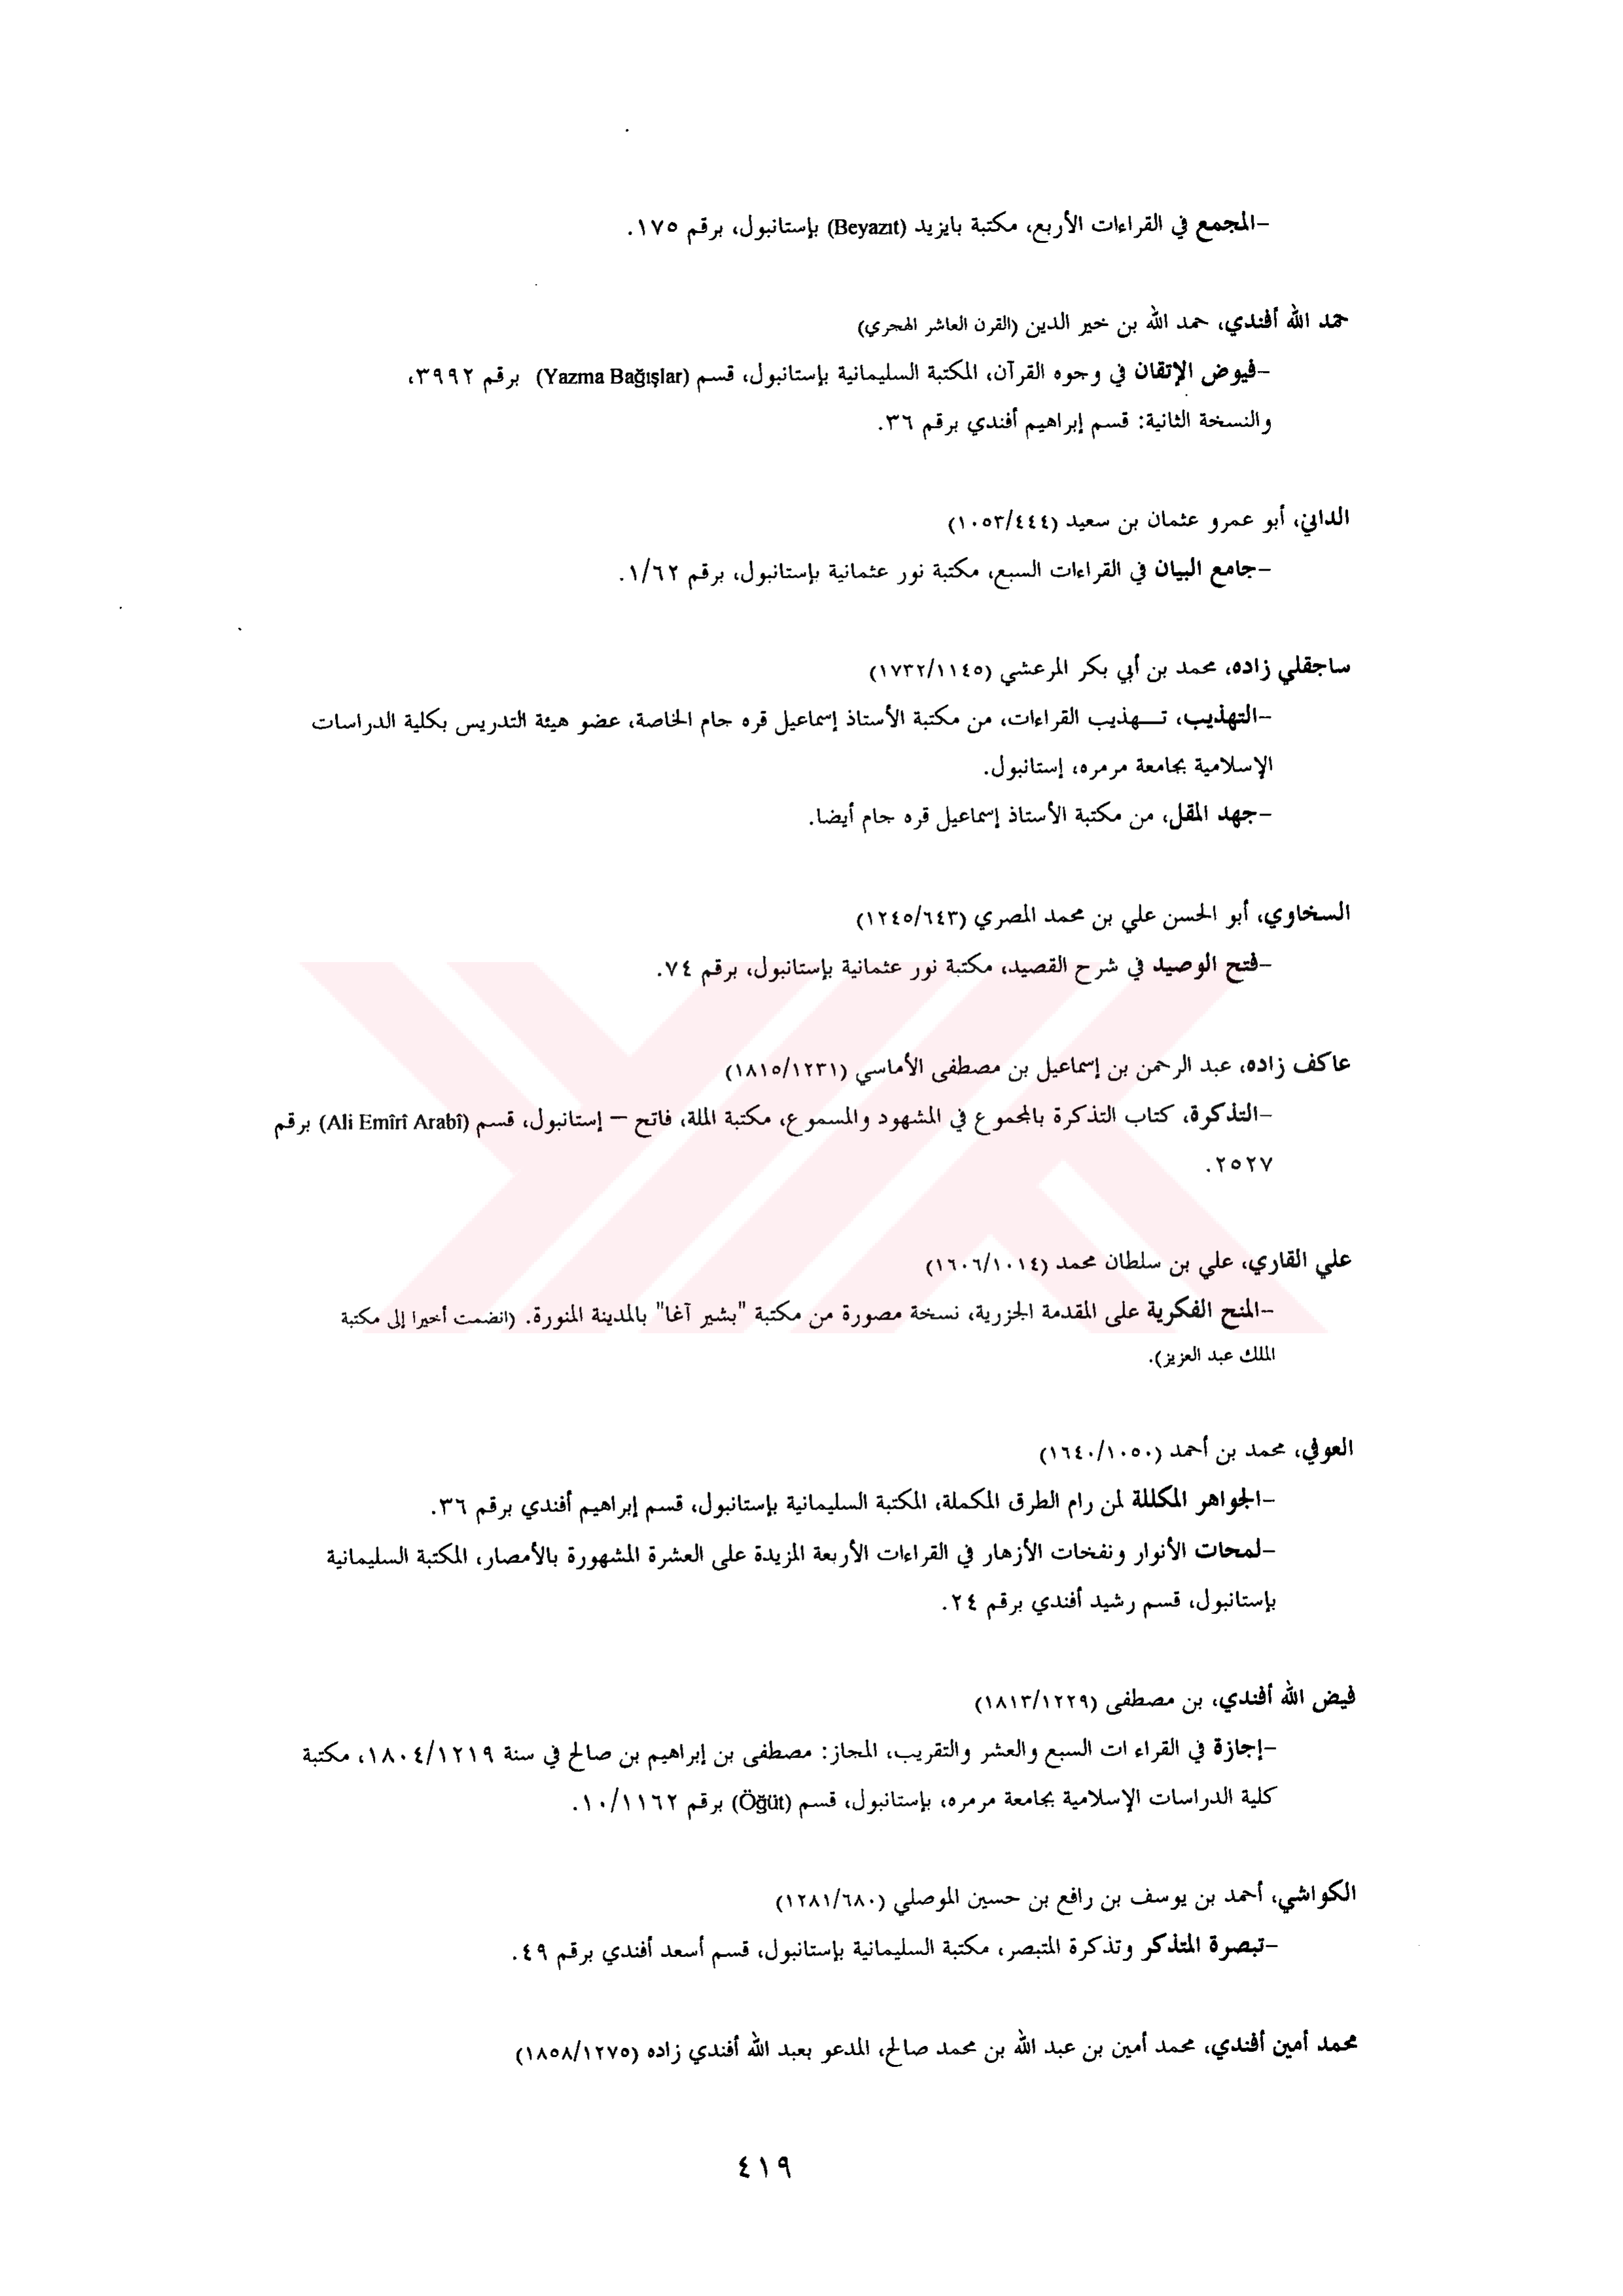 –المجمع في القراءات الأربع، مكتبة بايزيد (Beyazıt) بإستانبول، برقم ١٧٥.
حمد الله أفندي، حمد الله بن خير الدين (القرن العاشر الهجري)
–فيوض الإتقان في وجوه القرآن، المكتبة السليمانية بإستانبول، قسم (Yazma Bağışlar) برقم ٣٩٩٢،
والنسخة الثانية: قسم إبراهيم أفندي برقم ٣٦.
الداني، أبو عمرو عثمان بن سعيد (١٠٥٣/٤٤٤)
–جامع البيان في القراءات السبع، مكتبة نور عثمانية بإستانبول، برقم ١/٦٢.
ساجقلي زاده، محمد بن أبي بكر المرعشي (١٧٣٢/١١٤٥)
–التهذيب، تـــهذيب القراءات، من مكتبة الأستاذ إسماعيل قره جام الخاصة، عضو هيئة التدريس بكلية الدراسات
الإسلامية بجامعة مرمره، إستانبول.
–جهد المقل، من مكتبة الأستاذ إسماعيل قره جام أيضا.
السخاوي، أبو الحسن علي بن محمد المصري (١٢٤٥/٦٤٣)
–فتح الوصيد في شرح القصيد، مكتبة نور عثمانية بإستانبول، برقم ٧٤.
عاكف زاده، عبد الرحمن بن إسماعيل بن مصطفى الأماسي (١٨١٥/١٢٣١)
–التذكرة، كتاب التذكرة بالمجموع في المشهود والمسموع، مكتبة الملة، فاتح – إستانبول، قسم (Ali Emîrî Arabî) برقم
٢٥٢٧.
علي القاري، علي بن سلطان محمد (١٦٠٦/١٠١٤)
–المنح الفكرية على المقدمة الجزرية، نسخة مصورة من مكتبة "بشير آغا" بالمدينة المنورة. (انضمت أخيرا إلى مكتبة
الملك عبد العزيز).
العوفي، محمد بن أحمد (١٦٤٠/١٠٥٠)
–الجواهر المكللة لمن رام الطرق المكملة، المكتبة السليمانية بإستانبول، قسم إبراهيم أفندي برقم ٣٦.
–لمحات الأنوار ونفخات الأزهار في القراءات الأربعة المزيدة على العشرة المشهورة بالأمصار، المكتبة السليمانية
بإستانبول، قسم رشيد أفندي برقم ٢٤.
فيض الله أفندي، بن مصطفى (١٨١٣/١٢٢٩)
–إجازة في القراء ات السبع والعشر والتقريب، المجاز: مصطفى بن إبراهيم بن صالح في سنة ١٨٠٤/١٢١٩، مكتبة
كلية الدراسات الإسلامية بجامعة مرمره، بإستانبول، قسم (Öğüt) برقم ١٠/١١٦٢.
الكواشي، أحمد بن يوسف بن رافع بن حسين الموصلي (١٢٨١/٦٨٠)
–تبصرة المتذكر وتذكرة المتبصر، مكتبة السليمانية بإستانبول، قسم أسعد أفندي برقم ٤٩.
محمد أمين أفندي، محمد أمين بن عبد الله بن محمد صالح، المدعو بعبد الله أفندي زاده (١٨٥٨/١٢٧٥)
٤١٩